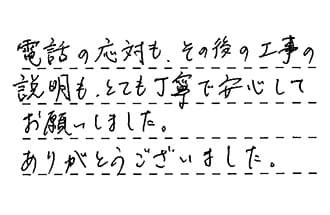 電話の応対も、その後の工事の
説明も、とても丁寧で安心して
お願いしました。
ありがとうございました。